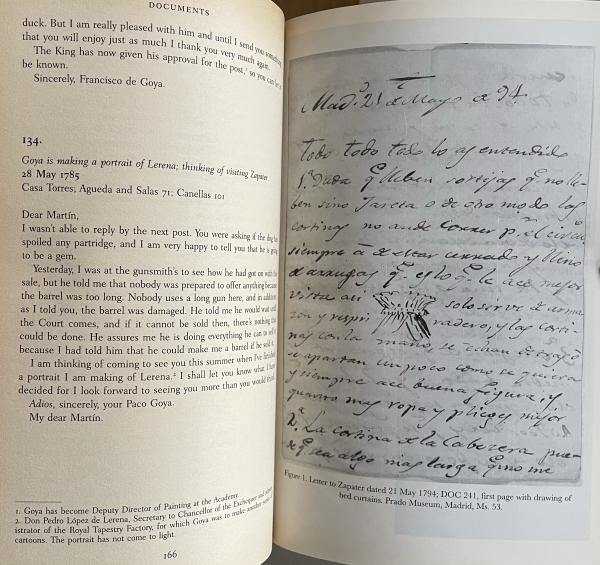 DOCUMENTS
duck. But I am really pleased with him and until I send you something
that you will enjoy just as much I thank you very much again.
The King has now given his approval for the post,¹ so you can let it
be known.
Sincerely, Francisco de Goya.
134.
Goya is making a portrait of Lerena; thinking of visiting Zapater
28 May 1785
Casa Torres; Agueda and Salas 71; Canellas 101
Dear Martín,
I wasn't able to reply by the next post. You were asking if the dog has
spoiled any partridge, and I am very happy to tell you that he is going
to be a gem.
Yesterday, I was at the gunsmith's to see how he had got on with the
sale, but he told me that nobody was prepared to offer anything because
the barrel was too long. Nobody uses a long gun here, and in addition
as I told you, the barrel was damaged. He told me he would wait until
the Court comes, and if it cannot be sold then, there's nothing that
could be done. He assures me he is doing everything he can to sell it
because I had told him that he could make me a barrel if he sold it.
I am thinking of coming to see you this summer when I've finished
a portrait I am making of Lerena.² I shall let you know what I have
decided for I look forward to seeing you more than you would think.
Adios, sincerely, your Paco Goya.
My dear Martín.
1. Goya has become Deputy Director of Painting at the Academy.
2. Don Pedro López de Lerena, Secretary to Chancellor of the Exchequer and
istrator of the Royal Tapestry Factory, for which Goya was to make another
cartoons. The portrait has not come to light.
166
Mad.ᵈ 21 de Mayo de 94.
todo todo todo lo as entendido
1.ª Duda q.ᵉ lleben sortijas q.ᵉ no lle-
ben sino Jareta o de otro modo las
cortinas no ande correr p.ʳ el
siempre à de estar cerrado y lleno
de arrugas q.ᵉ es lo q.ᵉ le ace mejor
vista asi solo sirve de arma
zon y respi radero, y las corti-
nas con la mano se
se apartan un poco como se quiera
y siempre ace buena figura, y
quanto mas ropa y pliegues mejor
2.ª La cortina de la Cabezera pue-
de q.ᵉ sea algo mas larga q.ᵉ no me
Figure 1. Letter to Zapater dated 21 May 1794; DOC 241, first page with drawing of
bed curtains. Prado Museum, Madrid, Ms. 53.